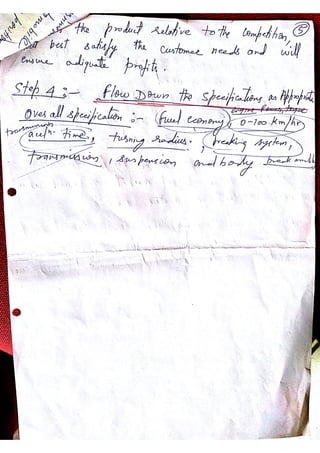 the product relative to the competition, 5
best satisfy the customer needs and will
ensure adiquate profits.
Step 4 :- Flow Down the specifications as Appropriate
Over all specification :- Fuel economy, 0-100 km/hr
time, turning radius, breaking system,
transmission, suspension and body